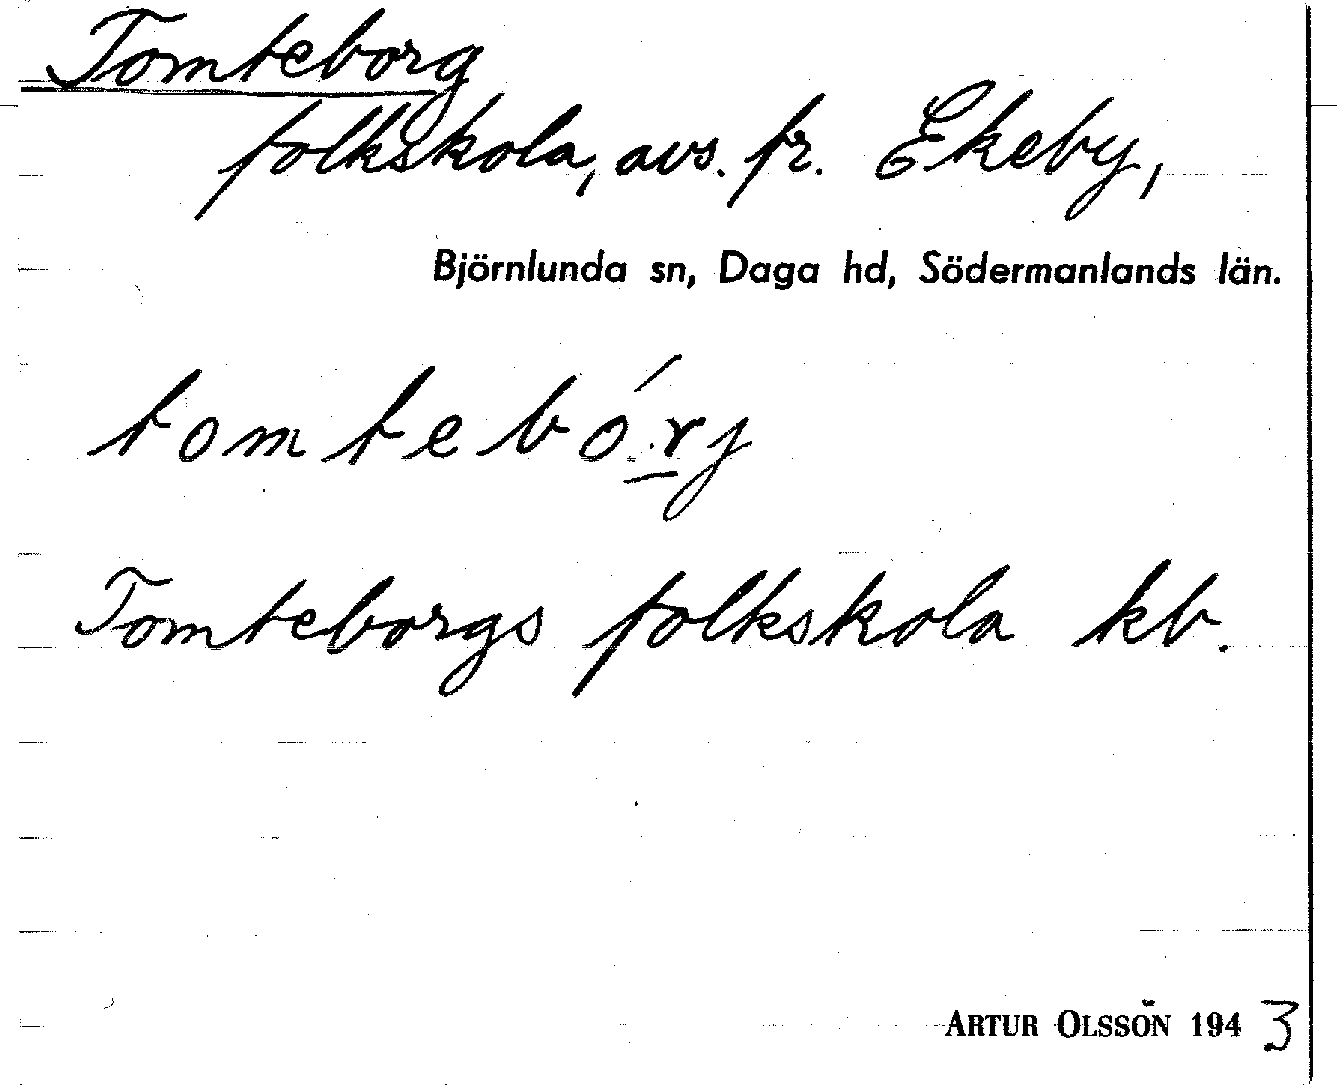 Tomteborg
folkskola, avs. fr. Ekeby,
Björnlunda sn, Daga hd, Södermanlands län.
tombtebó́rj
Tomteborgs folkskola kb.
ARTUR OLSSON 1943